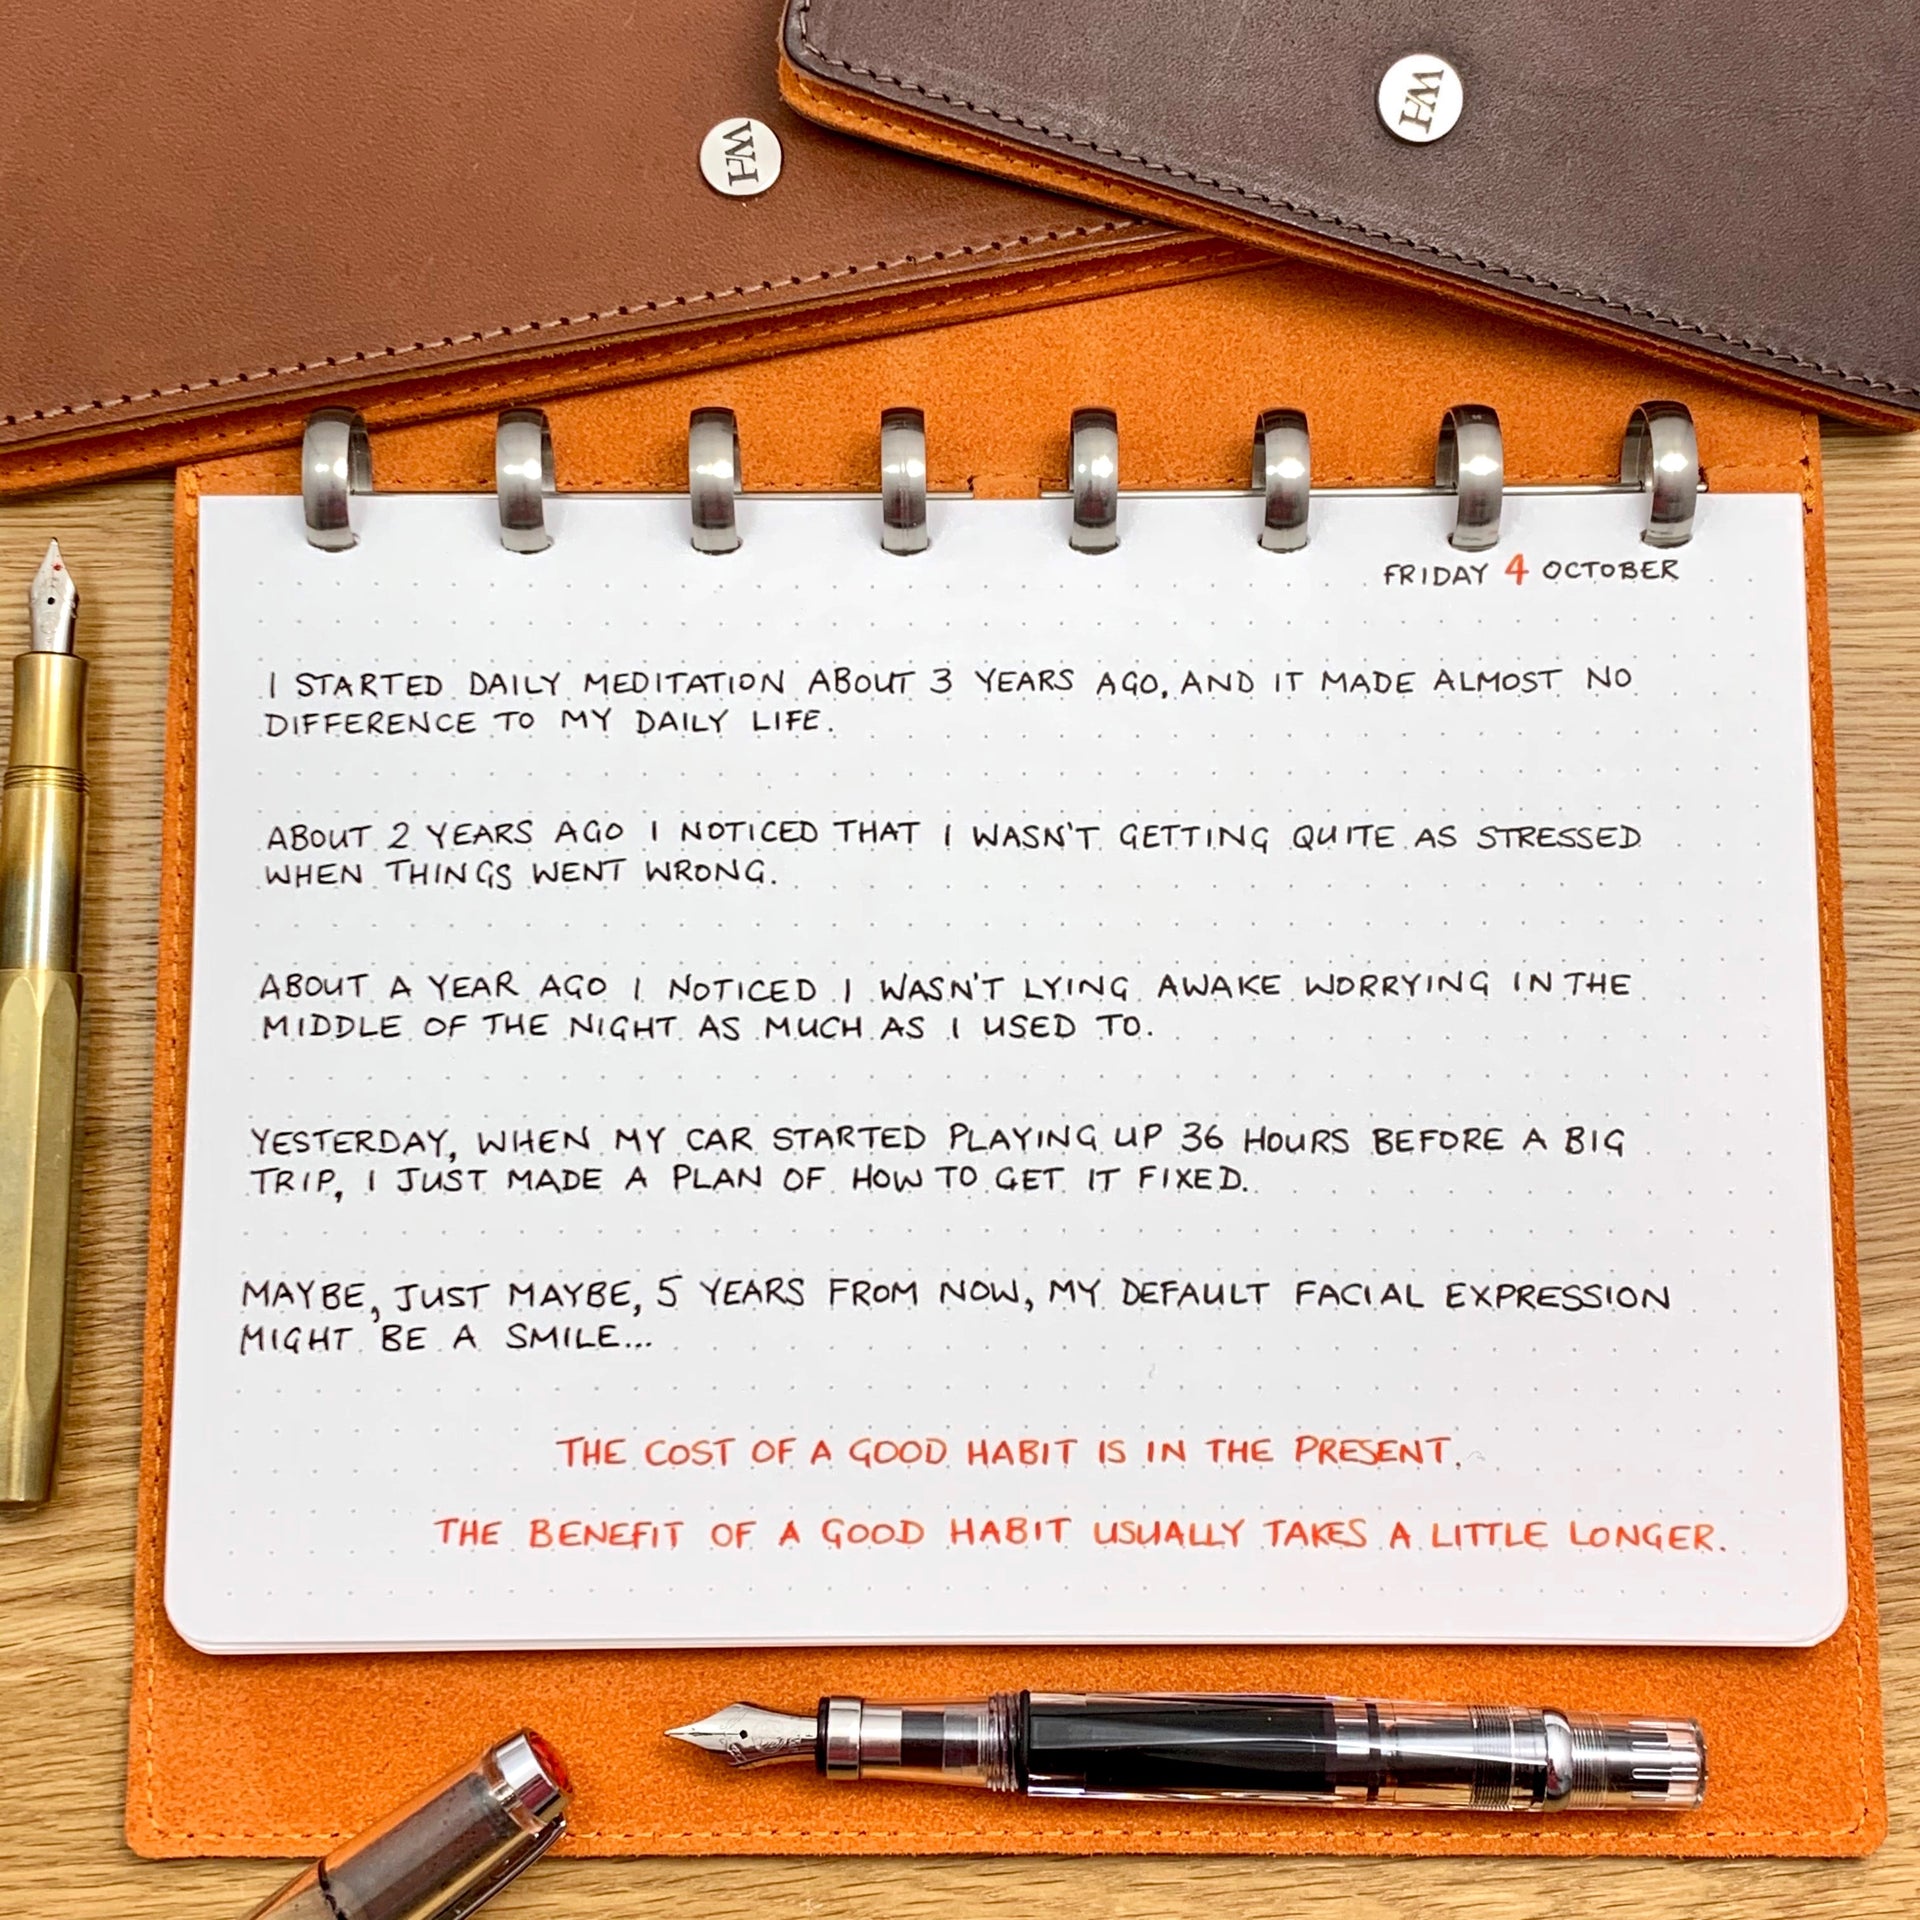 WH
WH
FRIDAY 4 OCTOBER
I STARTED DAILY MEDITATION ABOUT 3 YEARS AGO, AND IT MADE ALMOST NO
DIFFERENCE TO MY DAILY LIFE.
ABOUT 2 YEARS AGO I NOTICED THAT I WASN'T GETTING QUITE AS STRESSED
WHEN THINGS WENT WRONG.
ABOUT A YEAR AGO I NOTICED I WASN'T LYING AWAKE WORRYING IN THE
MIDDLE OF THE NIGHT AS MUCH AS I USED TO.
YESTERDAY, WHEN MY CAR STARTED PLAYING UP 36 HOURS BEFORE A BIG
TRIP, I JUST MADE A PLAN OF HOW TO GET IT FIXED.
MAYBE, JUST MAYBE, 5 YEARS FROM NOW, MY DEFAULT FACIAL EXPRESSION
MIGHT BE A SMILE...
THE COST OF A GOOD HABIT IS IN THE PRESENT.
THE BENEFIT OF A GOOD HABIT USUALLY TAKES A LITTLE LONGER.